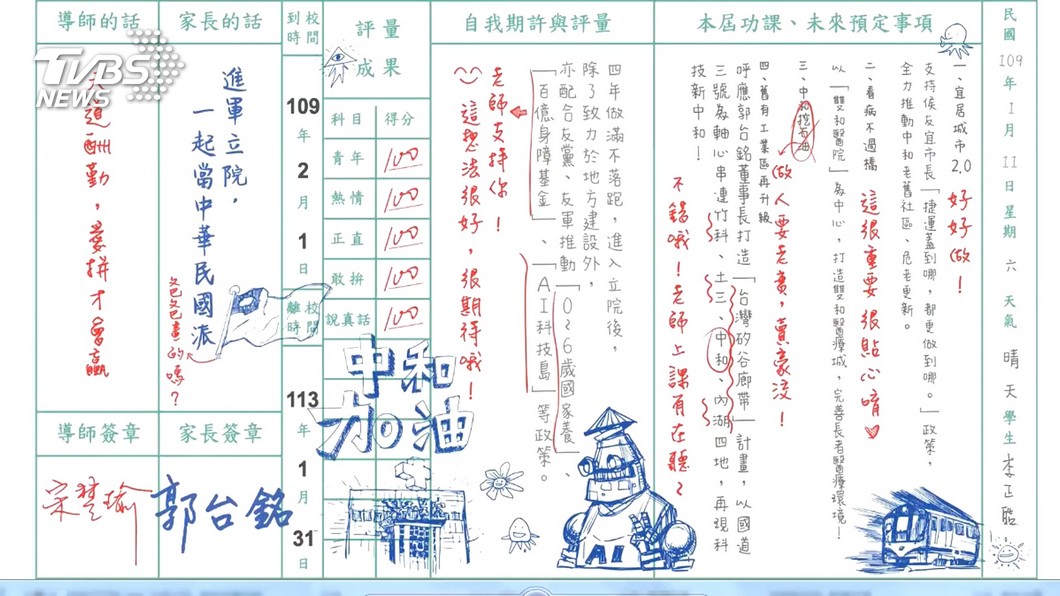 民國109年1月11日星期六 天氣 晴天 學生 李正皓
本屆功課、未來預定事項
一、宜居城市2.0
好好做！
支持侯友宜市長「捷運蓋到哪，都更做到哪。」政策，
全力推動中和老舊社區、危老更新。
二、看病不過橋
這很重要很貼心唷
以「雙和醫院」為中心，打造雙和醫療城，完善長者醫療環境！
三、中和挖石油
做人要老實，賣豪洨！
四、舊有工業區再升級
呼應郭台銘董事長打造「台灣矽谷廊帶」計畫，以國道
三號為軸心串連竹科、土三、中和、內湖四地，再現科
技新中和！
不錯哦！老師上課有在聽
自我期許與評量
四年做滿不落跑，進入立院後，
除了致力於地方建設外，
亦配合友黨、友軍推動「0~6歲國家養」、
「百億身障基金」、「AI科技島」等政策。
老師支持你！
這想法很好，很期待哦！
AI
評量
成果
科目 得分
青年 100
熱情 100
正直 100
敢拚 100
說真話 100
中和
加油
到校時間
109年2月1日
離校時間
113年1月31日
家長的話
進軍立院，
一起當中華民國派
爸爸畫的嗎？
家長簽章
郭台銘
導師的話
天道酬勤，愛拼才會贏
導師簽章
宋楚瑜
TVBS
NEWS